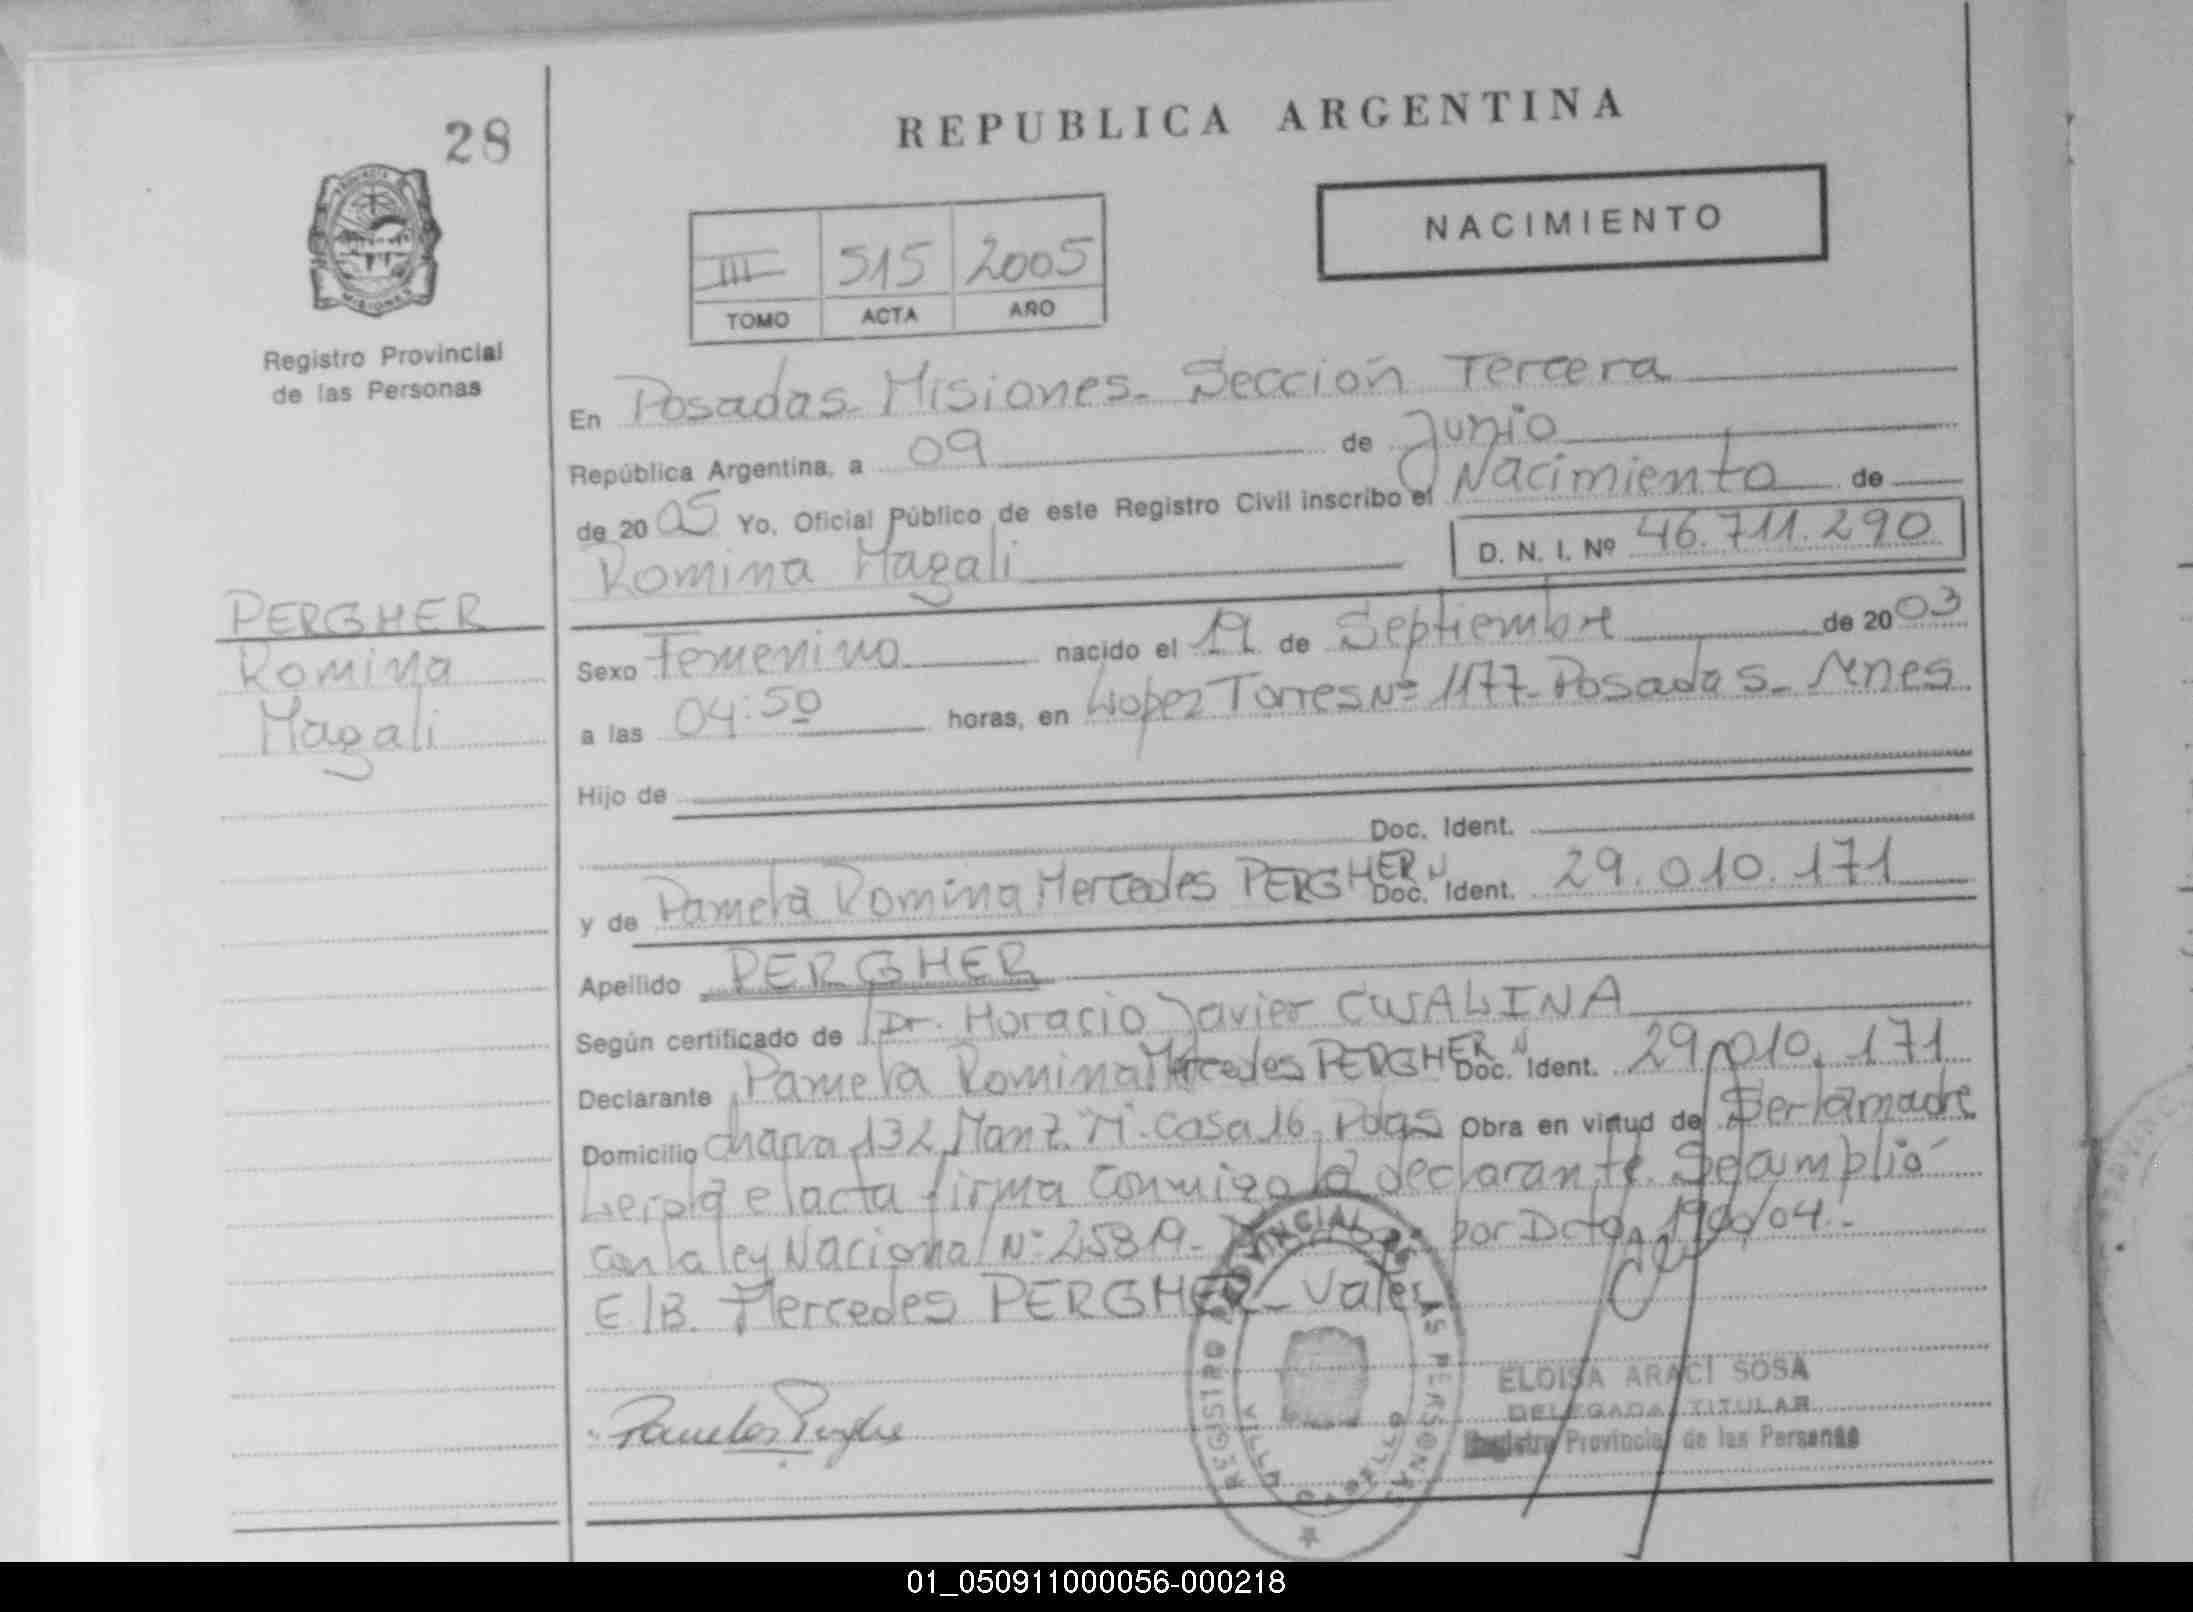 28
REPUBLICA ARGENTINA
NACIMIENTO
III 515 2005
TOMO ACTA AÑO
Registro Provincial
de las Personas
En Posadas Misiones Sección Tercera
República Argentina, a 09 de Junio
de 2005 Yo, Oficial Público de este Registro Civil inscribo el Nacimiento de
Romina Magali D. N. I. Nº 46.711.290
PERGHER
Romina
Magali
Sexo Femenino nacido el 19 de Septiembre de 2003
a las 04:50 horas, en Lopez Torres Nº 1177 Posadas Mnes
Hijo de
Doc. Ident.
y de Pamela Romina Mercedes PERGHER Doc. Ident. 29.010.171
Apellido PERGHER
Según certificado de Dr. Horacio Javier CUSALINA
Declarante Pamela Romina Mercedes PERGHER Doc. Ident. 29.010.171
Domicilio chacra 132 Manz. "M" Casa 16 Pdas Obra en virtud de Ser la madre
Leida el acta firma conmigo la declarante. Se cumplió
con la ley Nacional Nº 25819 por Dcto. 1900/04.-
E/B. Mercedes PERGHER Vale
REGISTRO PROVINCIAL DE LAS PERSONAS
VILLA CABELLO
ELOISA ARACI SOSA
DELEGADA TITULAR
Registro Provincial de las Personas
01_050911000056-000218